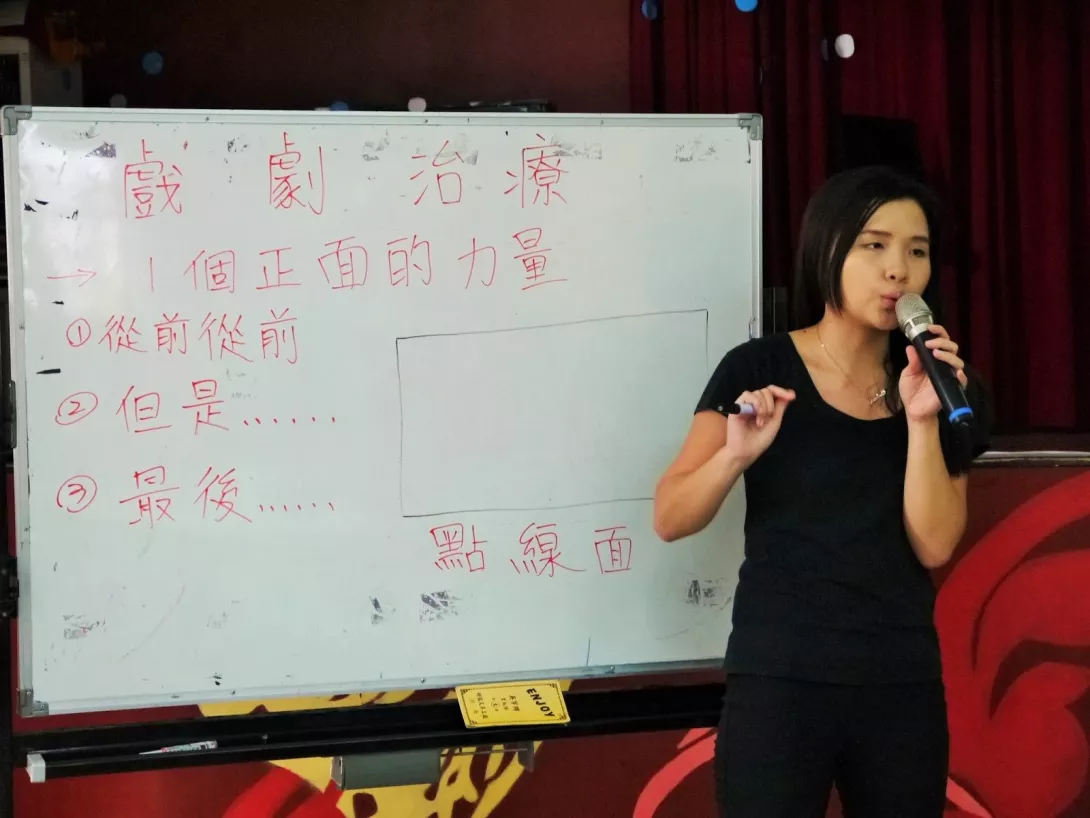 戲劇治療
→ 1個正面的力量
① 從前從前
② 但是......
③ 最後......
點線面
ENJOY